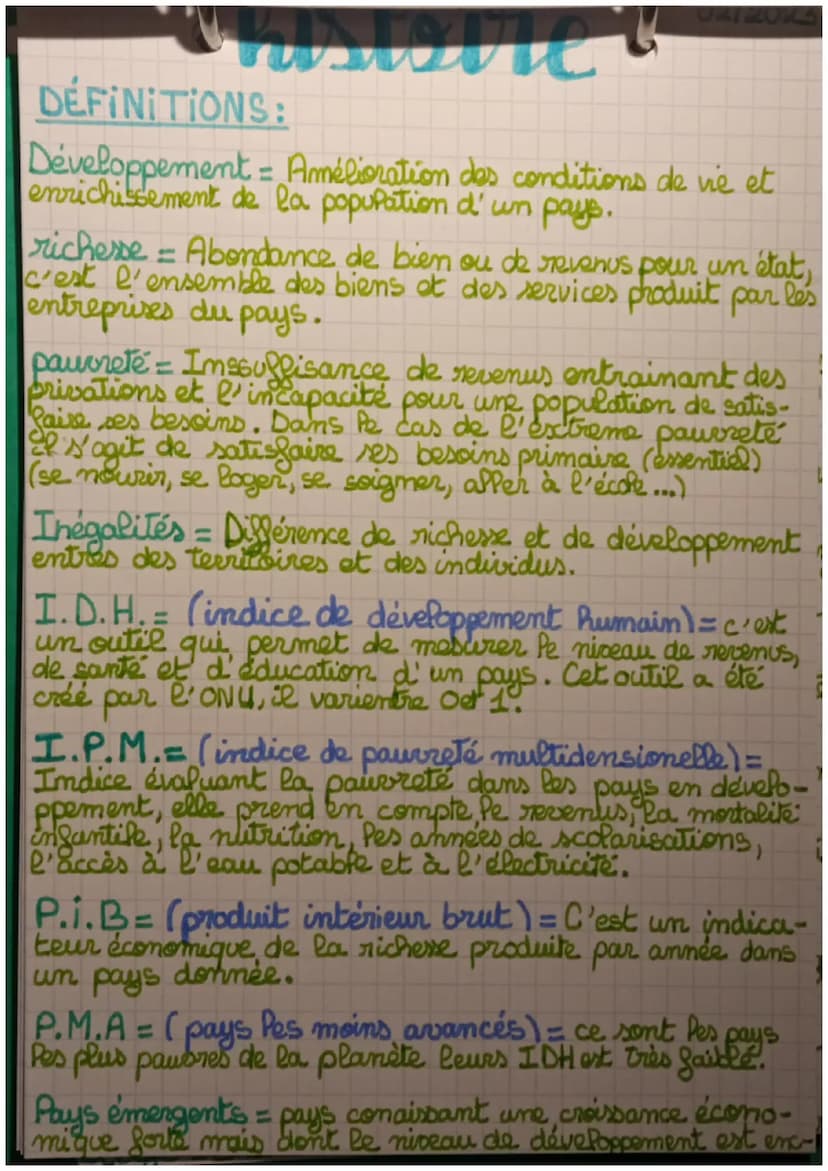 02/2025
histoire
DÉFiNiTiONS:
Développement = Amélioration des conditions de vie et
enrichissement de la population d'un pays.
richesse = Abondance de bien ou de revenus pour un état,
c'est l'ensemble des biens et des services produit par les
entreprises du pays.
pauvreté = Imssuffisance de revenus entrainant des
privations et l'incapacité pour une population de satis-
faire ses besoins. Dans le cas de l'extreme pauvreté
il s'agit de satisfaire ses besoins primaire (essentiel)
(se nourir, se loger, se soigner, aller à l'école ...)
Inégalités = Différence de richesse et de développement
entres des territoires et des individus.
I.D.H. = (indice de développement humain) = c'est
un outil qui permet de mesurer le niveau de revenus,
de santé et d'éducation d'un pays. Cet outil a été
créé par l'ONU, il varie entre 0 et 1.
I.P.M. = (indice de pauvreté multidensionelle) =
Imdice évaluant la pauvreté dans les pays en dévelo-
ppement, elle prend en compte, le revenus, la mortalité
infantile, la nutrition, les années de scolarisations,
l'accès à l'eau potable et à l'électricité.
P.i.B = (produit intérieur brut) = C'est un indica-
teur économique de la richesse produite par année dans
un pays donnée.
P.M.A = (pays les moins avancés) = ce sont les pays
les plus pauvres de la planète leurs IDH est très faible.
Pays émergents = pays conaissant une croissance écono-
mique forte mais dont le niveau de développement est enc-